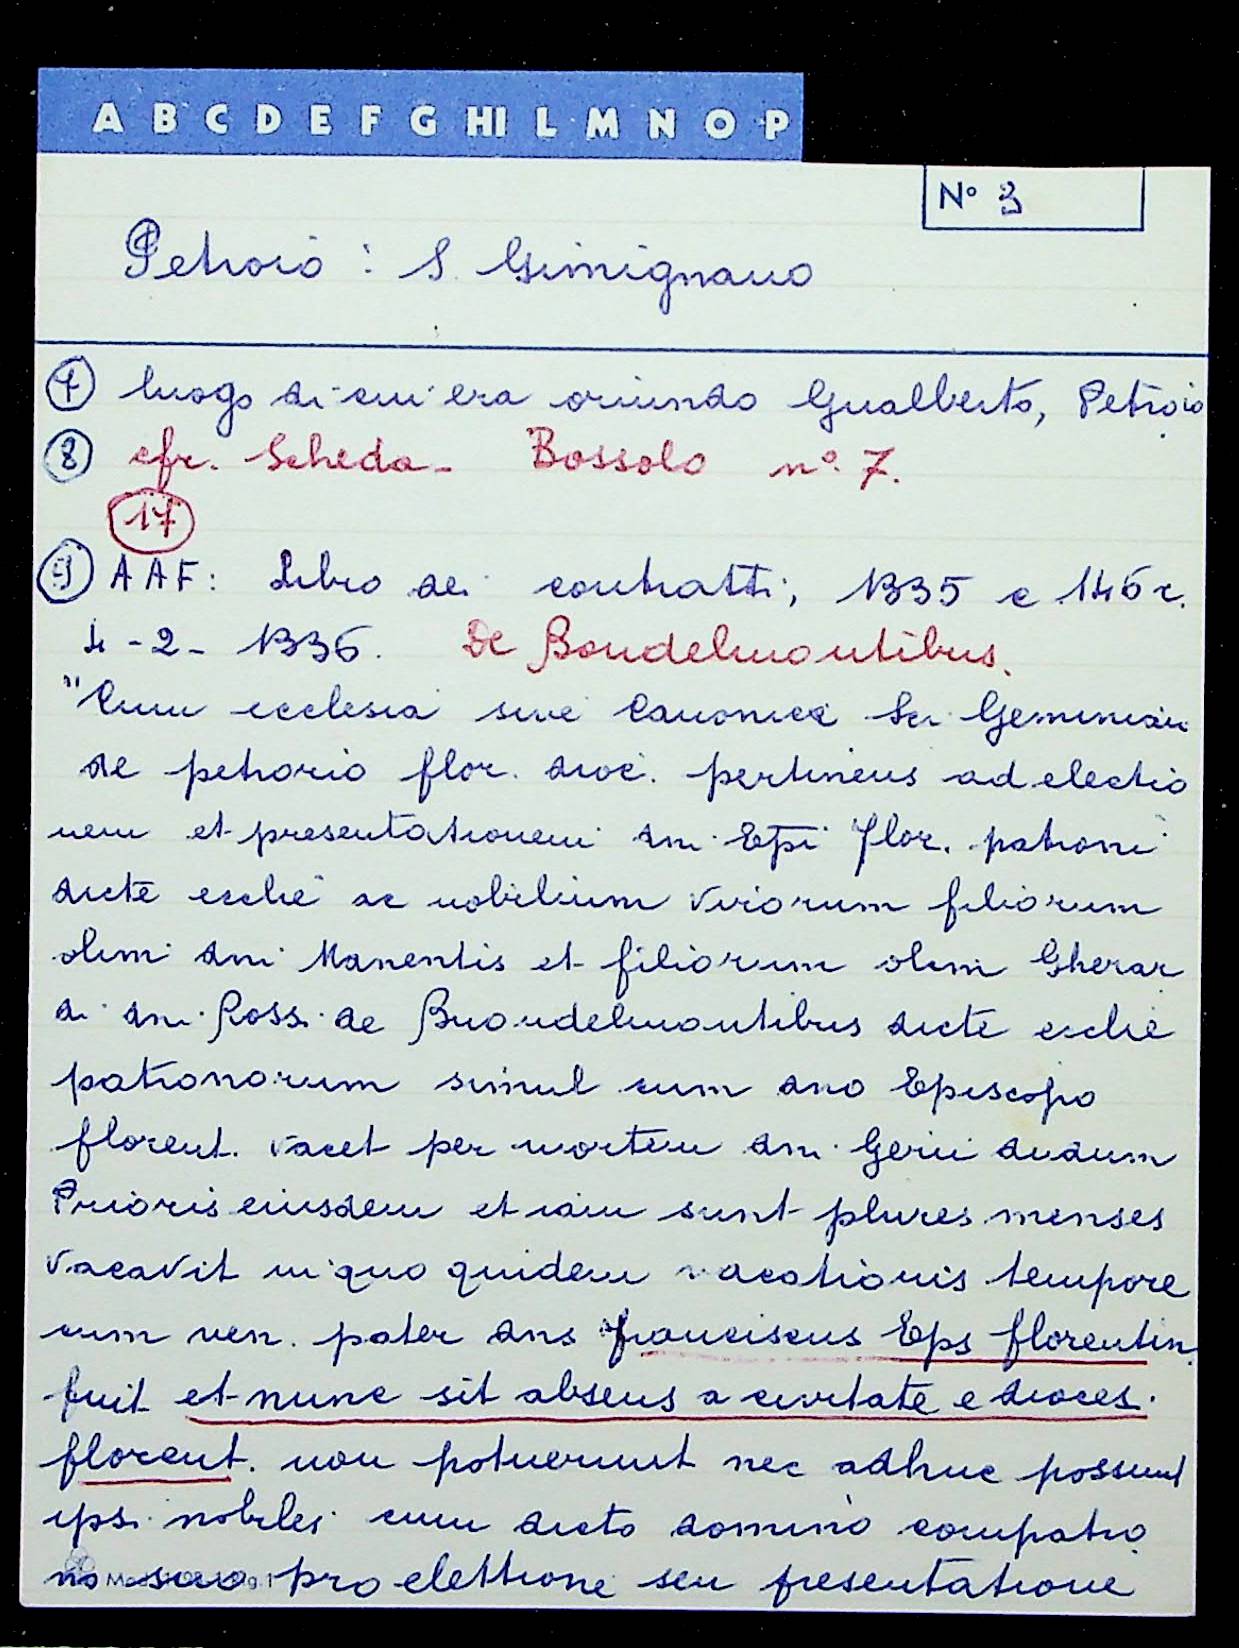 A B C D E F G HI L M N O P
N° 3
Petroio : S. Gimignano
7 luogo di cui era oriundo Gualberto, Petroio
8 cfr. Scheda - Bossolo n° 7.
17
9 AAF: Libro dei contratti, 1335 c 146 r.
4-2-1336. De Bondelmontibus.
"Cum ecclesia sive Canonica Sci Geminiani
de petrorio flor. dioc. pertinens ad electio
nem et presentationem dni Epi flor. patroni
dicte ecclie ac nobilium virorum filiorum
olim dni Manentis et filiorum olim Gherar
di dni Rossi de Buondelmontibus dicte ecclie
patronorum simul cum dno Episcopo
florent. vacet per mortem dni Gerii dudum
Prioris eiusdem et iam sunt plures menses
vacavit in quo quidem vacationis tempore
cum ven. pater dns franciscus Eps florentin.
fuit et nunc sit absens a civitate e dioces.
florent. non potuerunt nec adhuc possunt
ipsi nobiles cum dicto domino compatro
no suo pro elettione seu presentatione